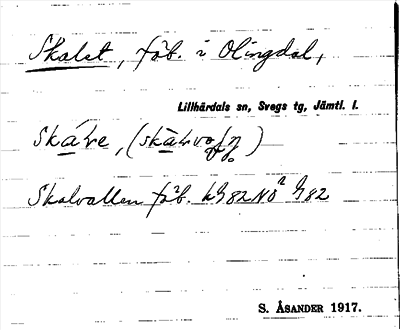 Skalet, fäb. i Olingdal,
Lillhärdals sn, Svegs tg, Jämtl. l.
Skáłve, (skàłvọ
Skalvallen fäb. kg 82 NO² h 82
S. ÅSANDER 1917.